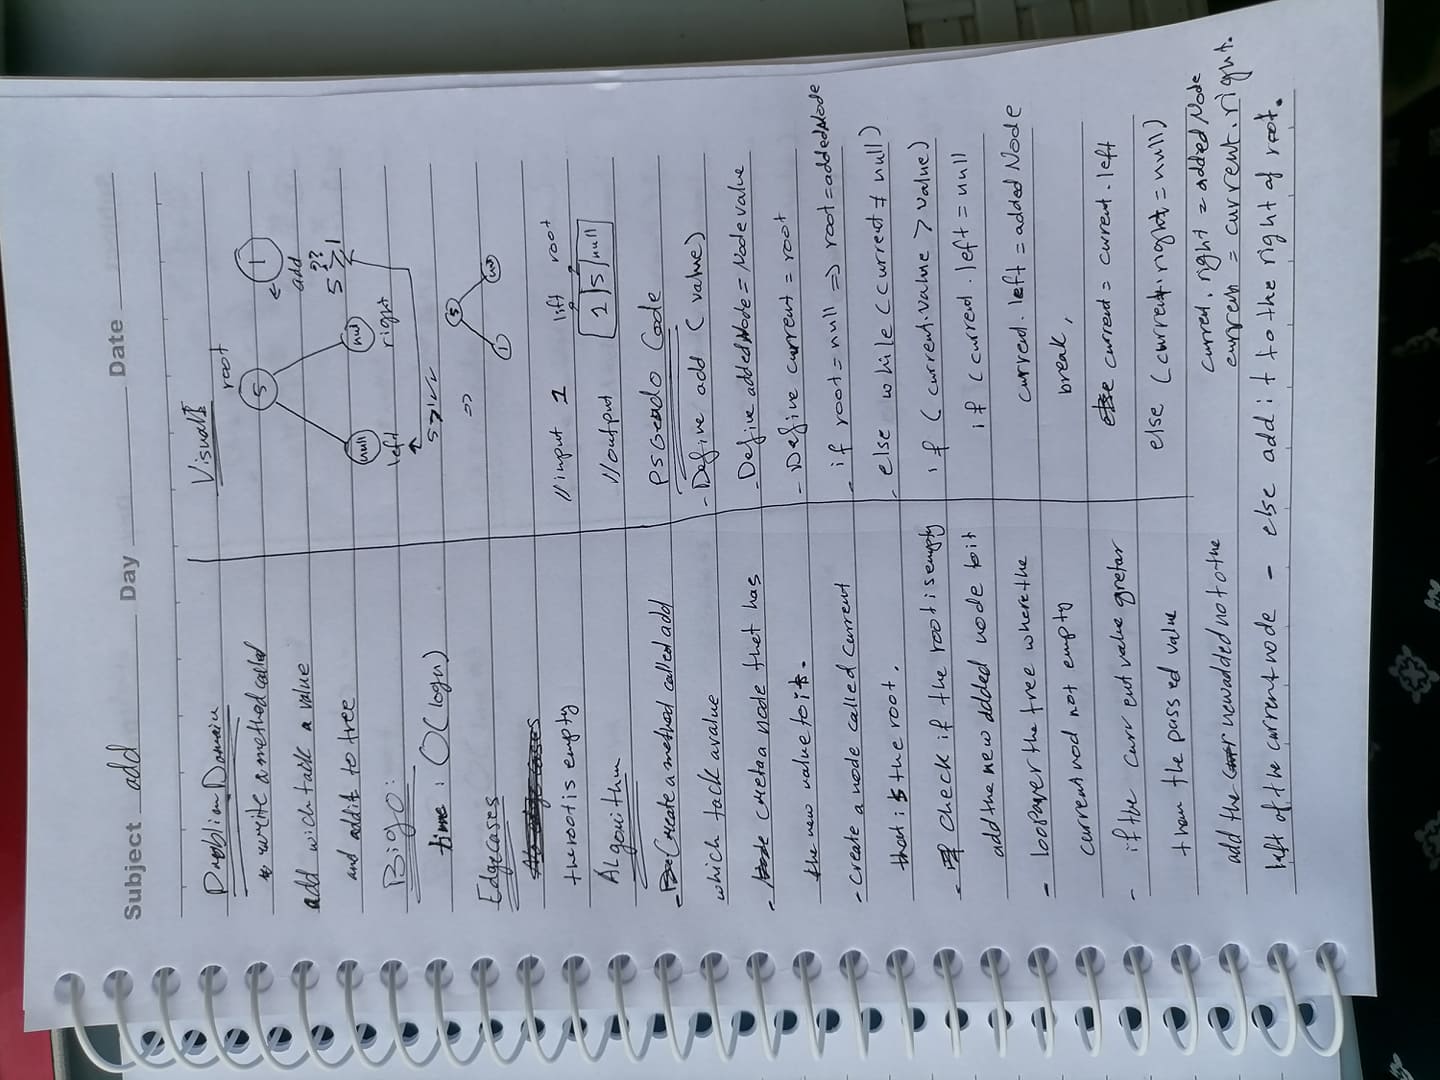 Subject add Day Date
Problem Domain
write a method called
add wich tack a value
and addit to tree
Big O:
time : O(logn)
Edgecases
the root is empty
ALgorithm
- Create a method called add
which tack a value
- creta a node that has
the new value to it.
- create a node called current
that is the root.
- check if the root is empty
add the new added node to it
- loop over the tree where the
current nod not empty
- if the current value gretar
than the passed value
add the new added no to the
left of the current node - else add it to the right of root.
Visual
root
5
1
add
null
null
left
right
5 > 1
??
5 > 1 ✓✓
=>
5
1
// input 1
left root
// output
1 | 5 | null
Code
- Define add (value)
- Define addedNode = Node value
- Define current = root
- if root = null => root = addedNode
- else while (current ≠ null)
if (current.value > value)
if (current.left = null
current.left = added Node
break,
else current = current.left
else (current.right = null)
current.right = added Node
current = current.right.